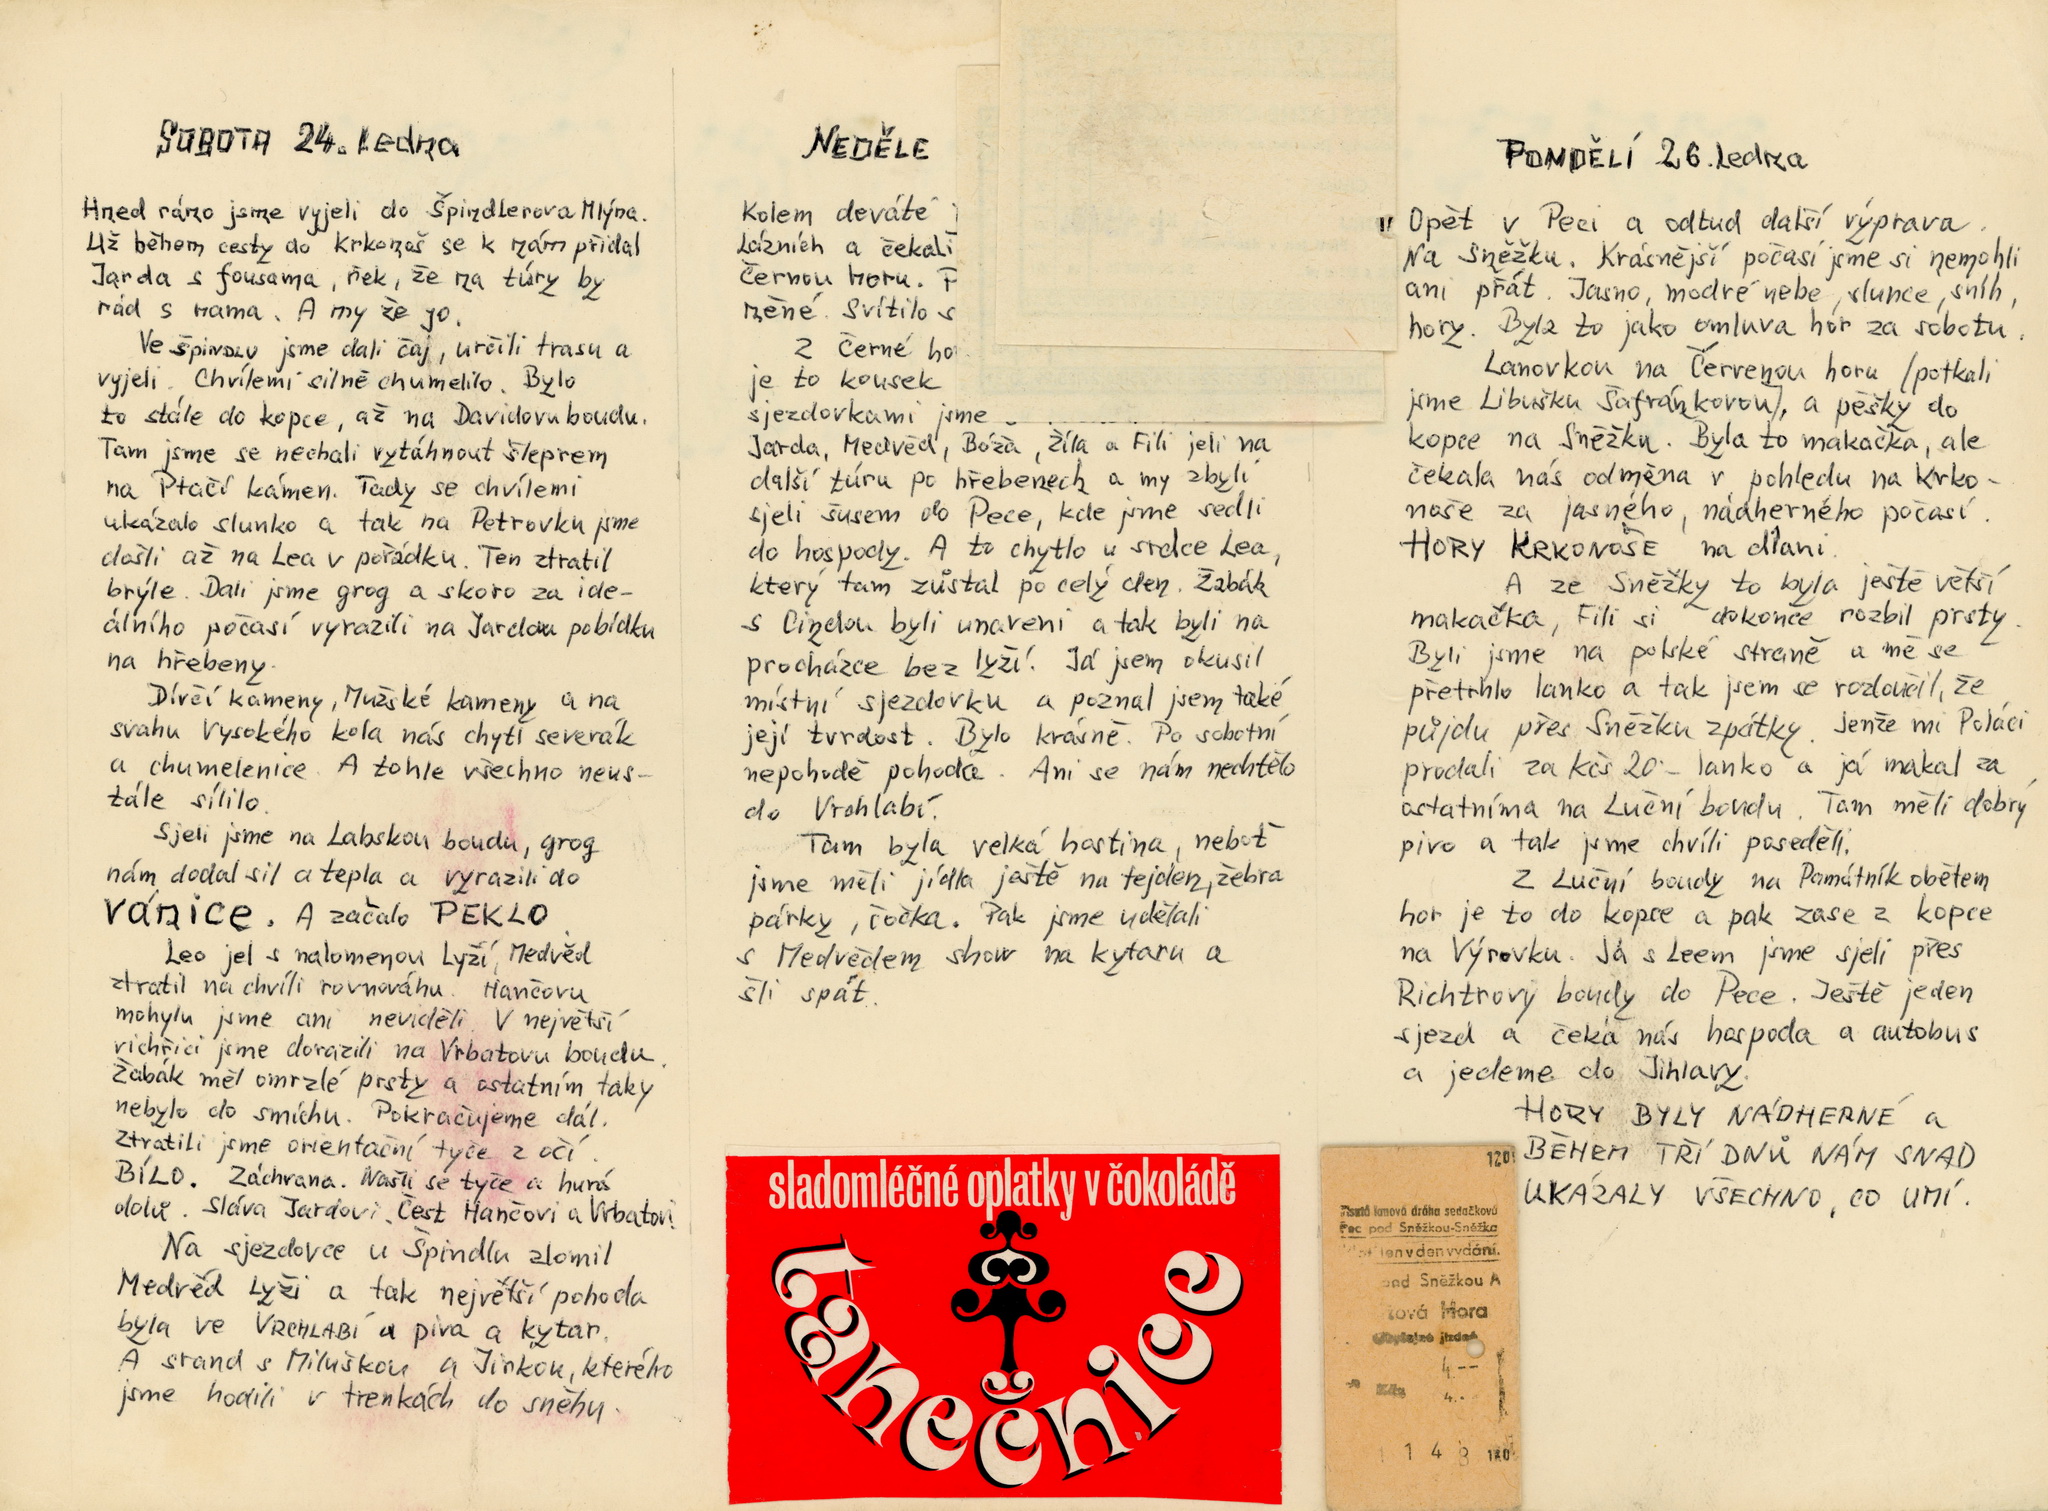 SOBOTA 24. Ledna
Hned ráno jsme vyjeli do Špindlerova Mlýna.
Už během cesty do Krkonoš se k nám přidal
Jarda s fousama, řek, že na túry by
rád s nama. A my že jo.
Ve Špindlu jsme dali čaj, určili trasu a
vyjeli. Chvílemi silně chumelilo. Bylo
to stále do kopce, až na Davidovu boudu.
Tam jsme se nechali vytáhnout šleprem
na Ptačí kámen. Tady se chvílemi
ukázalo slunko a tak na Petrovku jsme
došli až na Lea v pořádku. Ten ztratil
brýle. Dali jsme grog a skoro za ide-
álního počasí vyrazili na Jardou pobídku
na hřebeny.
Dívčí kameny, Mužské kameny a na
svahu Vysokého kola nás chytí severák
a chumelenice. A tohle všechno neus-
tále sílilo.
Sjeli jsme na Labskou boudu, grog
nám dodal sil a tepla a vyrazili do
vánice. A začalo PEKLO.
Leo jel s nalomenou Lyží, Medvěd
ztratil na chvíli rovnováhu. Hančovu
mohylu jsme ani neviděli. V největší
vichřici jsme dorazili na Vrbatovu boudu.
Žabák měl omrzlé prsty a ostatním taky
nebylo do smíchu. Pokračujeme dál.
Ztratili jsme orientační tyče z očí.
BÍLO. Záchrana. Našli se tyče a hurá
dolů. Sláva Jardovi. Čest Hančovi a Vrbatovi
Na sjezdovce u Špindlu zlomil
Medvěd Lyži a tak největší pohoda
byla ve VRCHLABÍ u piva a kytar.
A srand s Miluškou a Jirkou, kterého
jsme hodili v trenkách do sněhu.
NEDĚLE
Kolem deváté
Lázních a čekali
Černou horu.
měné. Svítilo s
Z Černé ho
je to kousek
sjezdovkami jsme
Jarda, Medvěd, Bóža, Žíla a Fili jeli na
další túru po hřebenech a my zbylí
sjeli šusem do Pece, kde jsme sedli
do hospody. A to chytlo u srdce Lea,
který tam zůstal po celý den. Žabák
s Cindou byli unaveni a tak byli na
procházce bez lyží. Já jsem okusil
místní sjezdovku a poznal jsem také
její tvrdost. Bylo krásně. Po sobotní
nepohodě pohoda. Ani se nám nechtělo
do Vrchlabí.
Tam byla velká hostina, neboť
jsme měli jídla ještě na tejden, žebra
párky, čočka. Pak jsme udělali
s Medvědem show na kytaru a
šli spát.
PONDĚLÍ 26. Ledna
Opět v Peci a odtud další výprava.
Na Sněžku. Krásnější počasí jsme si nemohli
ani přát. Jasno, modré nebe, slunce, sníh,
hory. Byla to jako omluva hor za sobotu.
Lanovkou na Červenou horu /potkali
jsme Libušku Šafránkovou/, a pěšky do
kopce na Sněžku. Byla to makačka, ale
čekala nás odměna v pohledu na Krko-
noše za jasného, nádherného počasí.
HORY KRKONOŠE na dlani.
A ze Sněžky to byla ještě větší
makačka, Fili si dokonce rozbil prsty.
Byli jsme na polské straně a mě se
přetrhlo lanko a tak jsem se rozloučil, že
půjdu přes Sněžku zpátky. Jenže mi Poláci
prodali za Kčs 20.- lanko a já makal za
ostatníma na Luční boudu. Tam měli dobrý
pivo a tak jsme chvíli poseděli.
Z Luční boudy na Památník obětem
hor je to do kopce a pak zase z kopce
na Výrovku. Já s Leem jsme sjeli přes
Richtrovy boudy do Pece. Ještě jeden
sjezd a čeká nás hospoda a autobus
a jedeme do Jihlavy.
HORY BYLY NÁDHERNÉ a
BĚHEM TŘÍ DNŮ NÁM SNAD
UKÁZALY VŠECHNO, CO UMÍ.
sladomléčné oplatky v čokoládě
tanečnice
120
lanová dráha sedačková
Pec pod Sněžkou-Sněžka
jen v den vydání.
pod Sněžkou A
ová Hora
jízdné
4.--
Kčs 4.-
1 1 4 8 120